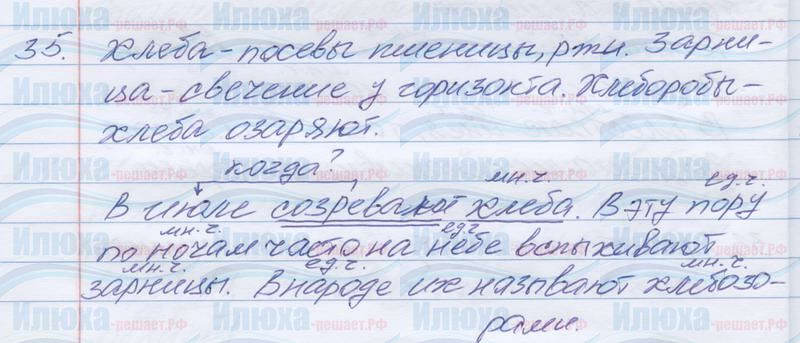 35. Хлеба - посевы пшеницы, ржи. Зарни-
ца - свечение у горизонта. Хлеборобы -
хлеба озаряют.
когда?
мн.ч. ед.ч.
В июле созревали хлеба. В эту пору
мн.ч. ед.ч.
по ночам часто на небе вспыхивают
мн.ч. ед.ч. мн.ч.
зарницы. В народе их называют хлебозо-
рами.
Илюха-решает.РФ